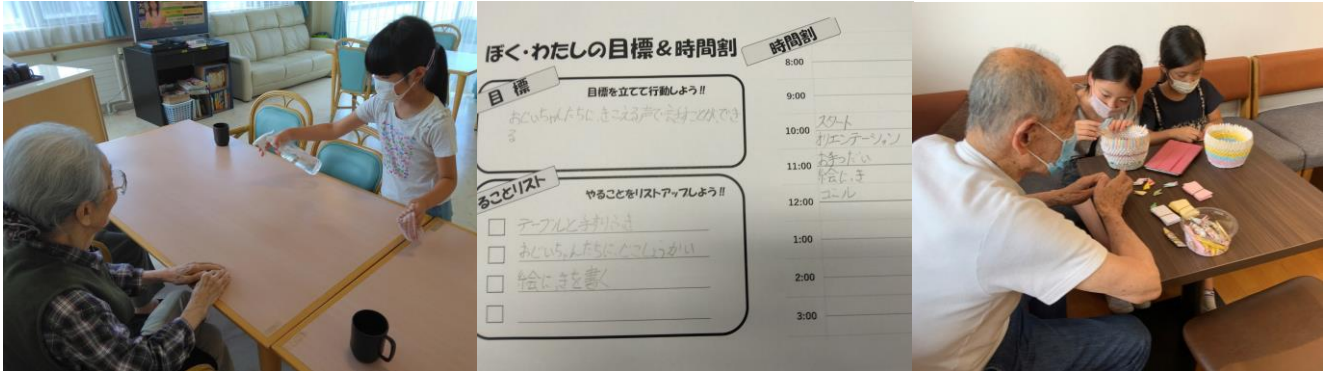 ぼく・わたしの目標&時間割
目標
目標を立てて行動しよう!!
おじいちゃんたちに、きこえる声で会話することができ
る
ることリスト
やることをリストアップしよう!!
テーブルと手すりふき
おじいちゃんたちにじこしょうかい
絵にっきを書く
時間割
8:00
9:00
10:00 スタート
オリエンテーション
11:00 お手つだい
絵にっき
12:00 ゴール
1:00
2:00
3:00